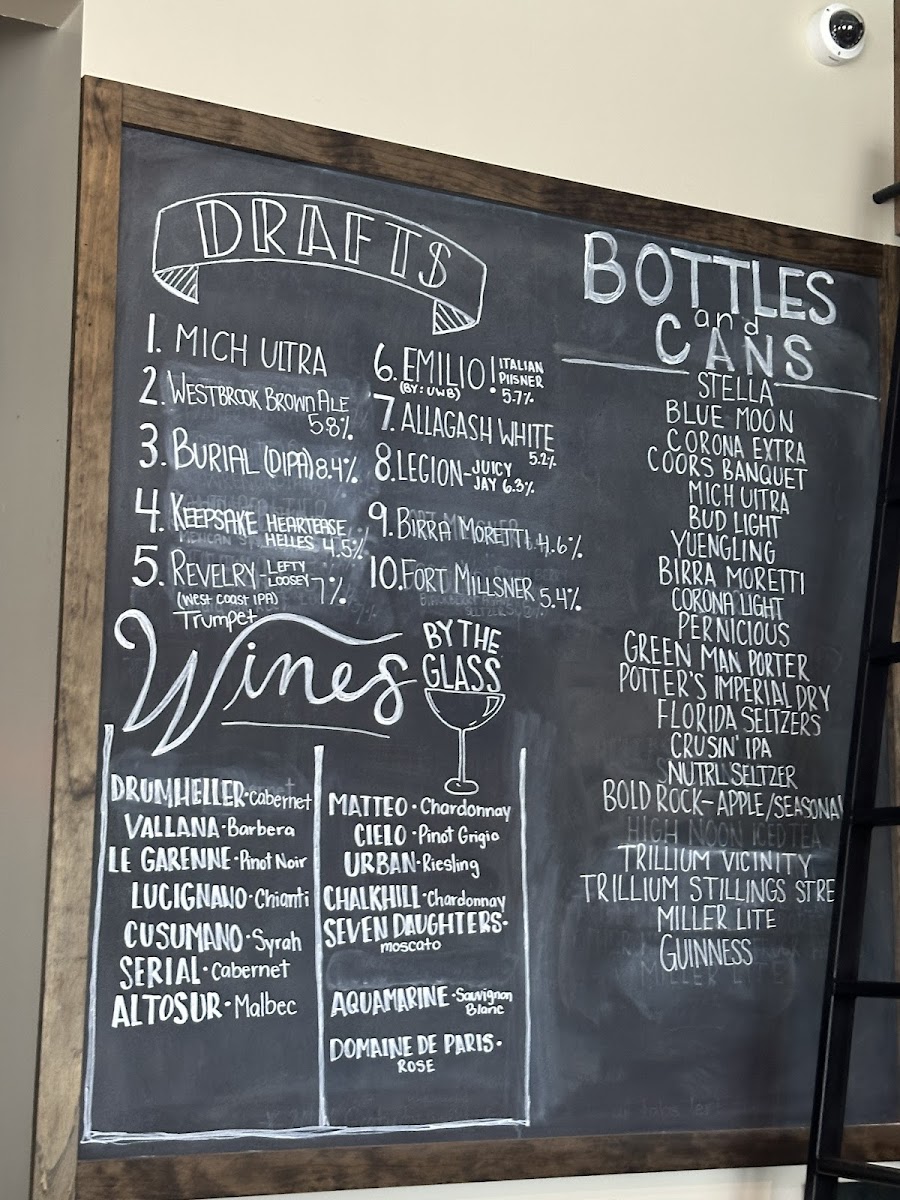 DRAFTS
1. MICH ULTRA
2. WESTBROOK BROWN ALE
5.8%
3. BURIAL (DIPA) 8.4%
4. KEEPSAKE HEARTEASE
HELLES 4.5%
5. REVELRY - LEFTY
LOOSEY 7%
(WEST COAST IPA)
Trumpet
6. EMILIO! ITALIAN
PILSNER
(BY: UWB)
5.7%
7. ALLAGASH WHITE
5.2%
8. LEGION - JUICY
JAY 6.3%
9. BIRRA MORETTI 4.6%
10. FORT MILLSNER 5.4%
Wines
BY THE
GLASS
DRUMHELLER · Cabernet
VALLANA · Barbera
LE GARENNE · Pinot Noir
LUCIGNANO · Chianti
CUSUMANO · Syrah
SERIAL · Cabernet
ALTOSUR · Malbec
MATTEO · Chardonnay
CIELO · Pinot Grigio
URBAN · Riesling
CHALKHILL · Chardonnay
SEVEN DAUGHTERS ·
moscato
AQUAMARINE · Sauvignon
Blanc
DOMAINE DE PARIS ·
ROSE
BOTTLES
and
CANS
STELLA
BLUE MOON
CORONA EXTRA
COORS BANQUET
MICH ULTRA
BUD LIGHT
YUENGLING
BIRRA MORETTI
CORONA LIGHT
PERNICIOUS
GREEN MAN PORTER
POTTER'S IMPERIAL DRY
FLORIDA SELTZERS
CRUSIN' IPA
NUTRL SELTZER
BOLD ROCK - APPLE/SEASONAL
HIGH NOON ICED TEA
TRILLIUM VICINITY
TRILLIUM STILLINGS STRE
MILLER LITE
GUINNESS
MILLER LITE